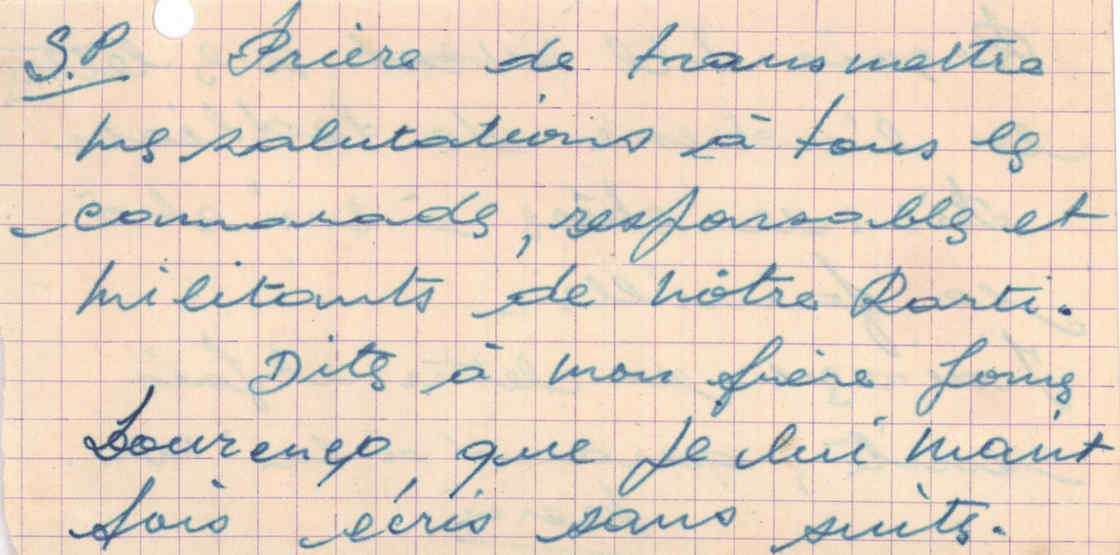 S.P Prière de transmettre
mes salutations à tous les
camarades, responsables et
militants de nôtre Parti.
Dites à mon frère
Lourenço que je lui maint
fois écris sans suites.